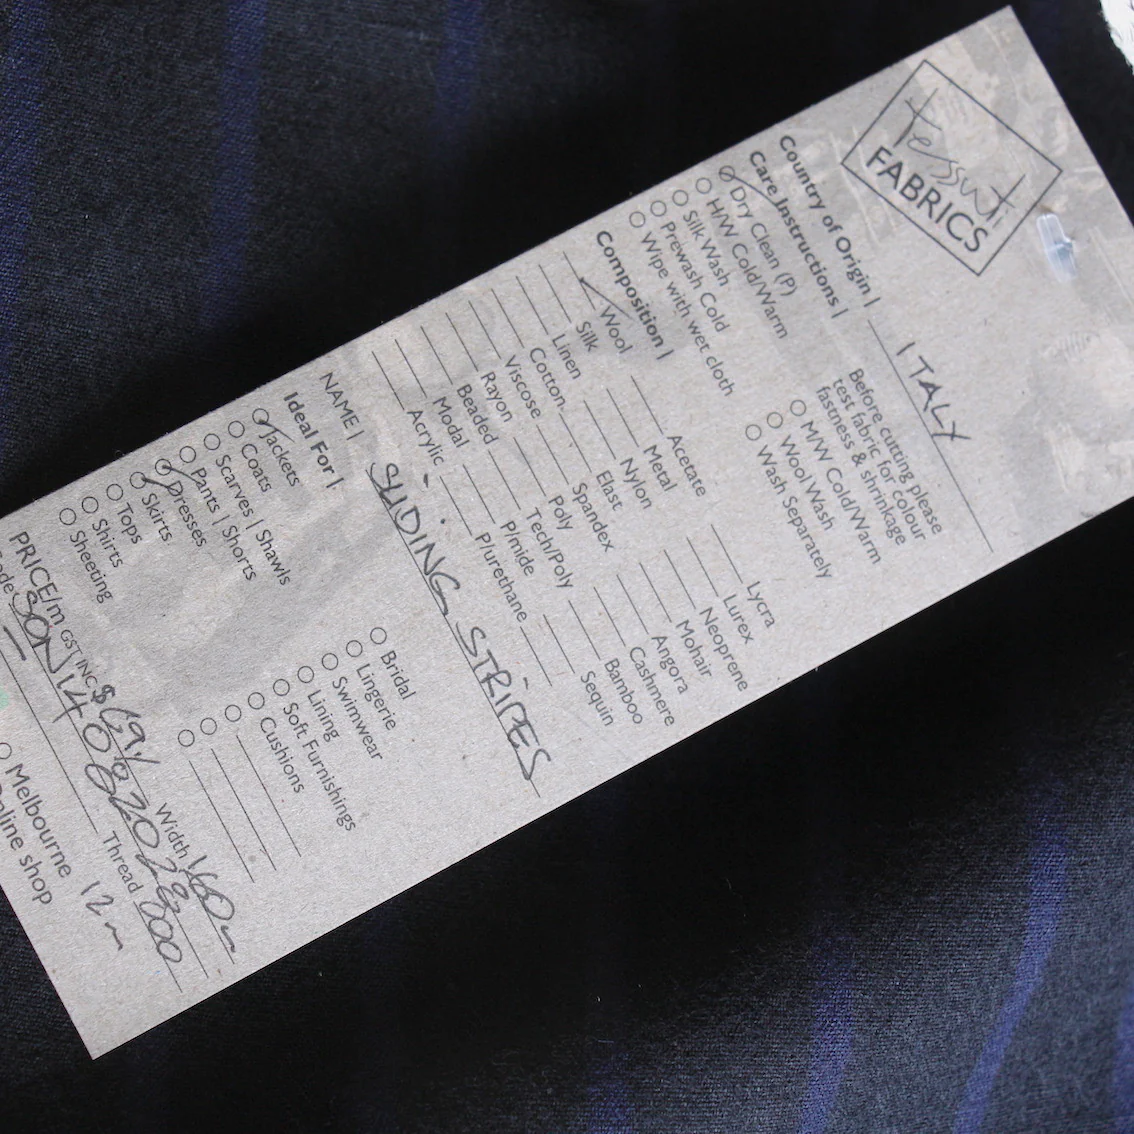 tessuti
FABRICS
Country of Origin | ITALY
Care Instructions |
Dry Clean (P)
H/W Cold/Warm
Silk Wash
Prewash Cold
Wipe with wet cloth
Before cutting please
test fabric for colour
fastness & shrinkage
M/W Cold/Warm
Wool Wash
Wash Separately
Composition |
Wool
Silk
Linen
Cotton
Viscose
Rayon
Beaded
Modal
Acrylic
Acetate
Metal
Nylon
Elast
Spandex
Poly
Tech/Poly
P/mide
P/urethane
Lycra
Lurex
Neoprene
Mohair
Angora
Cashmere
Bamboo
Sequin
NAME | SLIDING STRIPES
Ideal For |
Jackets
Coats
Scarves | Shawls
Pants | Shorts
Dresses
Skirts
Tops
Shirts
Sheeting
Bridal
Lingerie
Swimwear
Lining
Soft Furnishings
Cushions
PRICE/m GST INC $69 Width
Thread 800
Melbourne 12m
shop